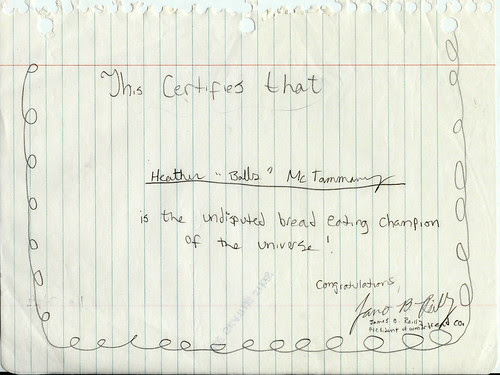 This Certifies that
Heather "Ballz" McTammany
is the undisputed bread eating champion
of the universe!
Congratulations,
James B. Reilly
James B. Reilly
President of wonderbread co.